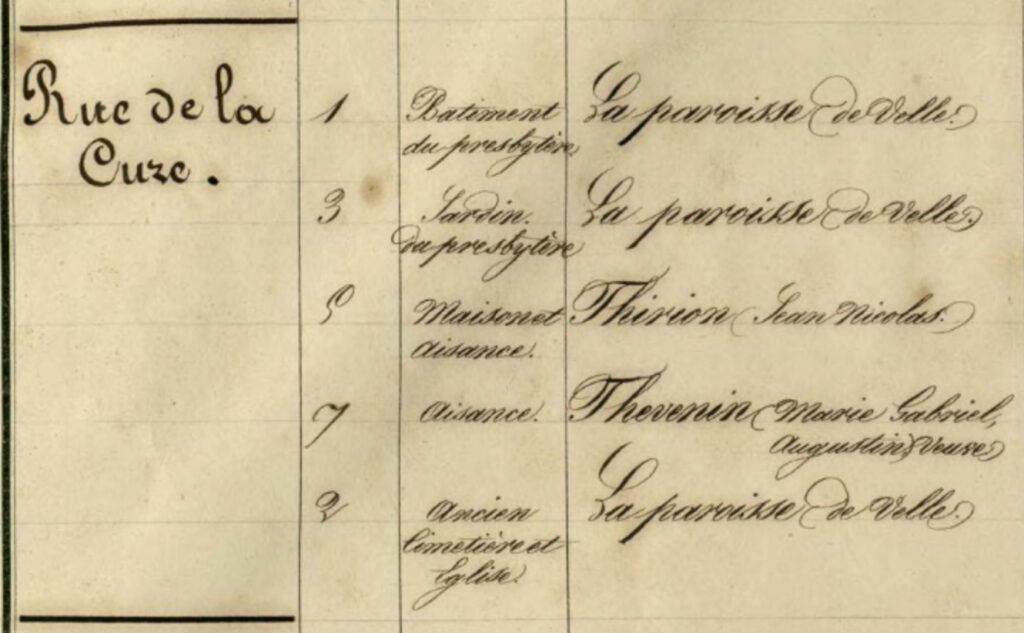 Rue de la
Cure.
1 Batiment La paroisse (de Velle.)
du presbytère
3 Jardin. La paroisse (de Velle.)
du presbytère
5 Maison et Thirion (Jean Nicolas.)
aisance.
7 Aisance. Thevenin (Marie Gabriel,
Augustin) Veuve)
2 Ancien La paroisse (de Velle.)
Cimetière et
Eglise.